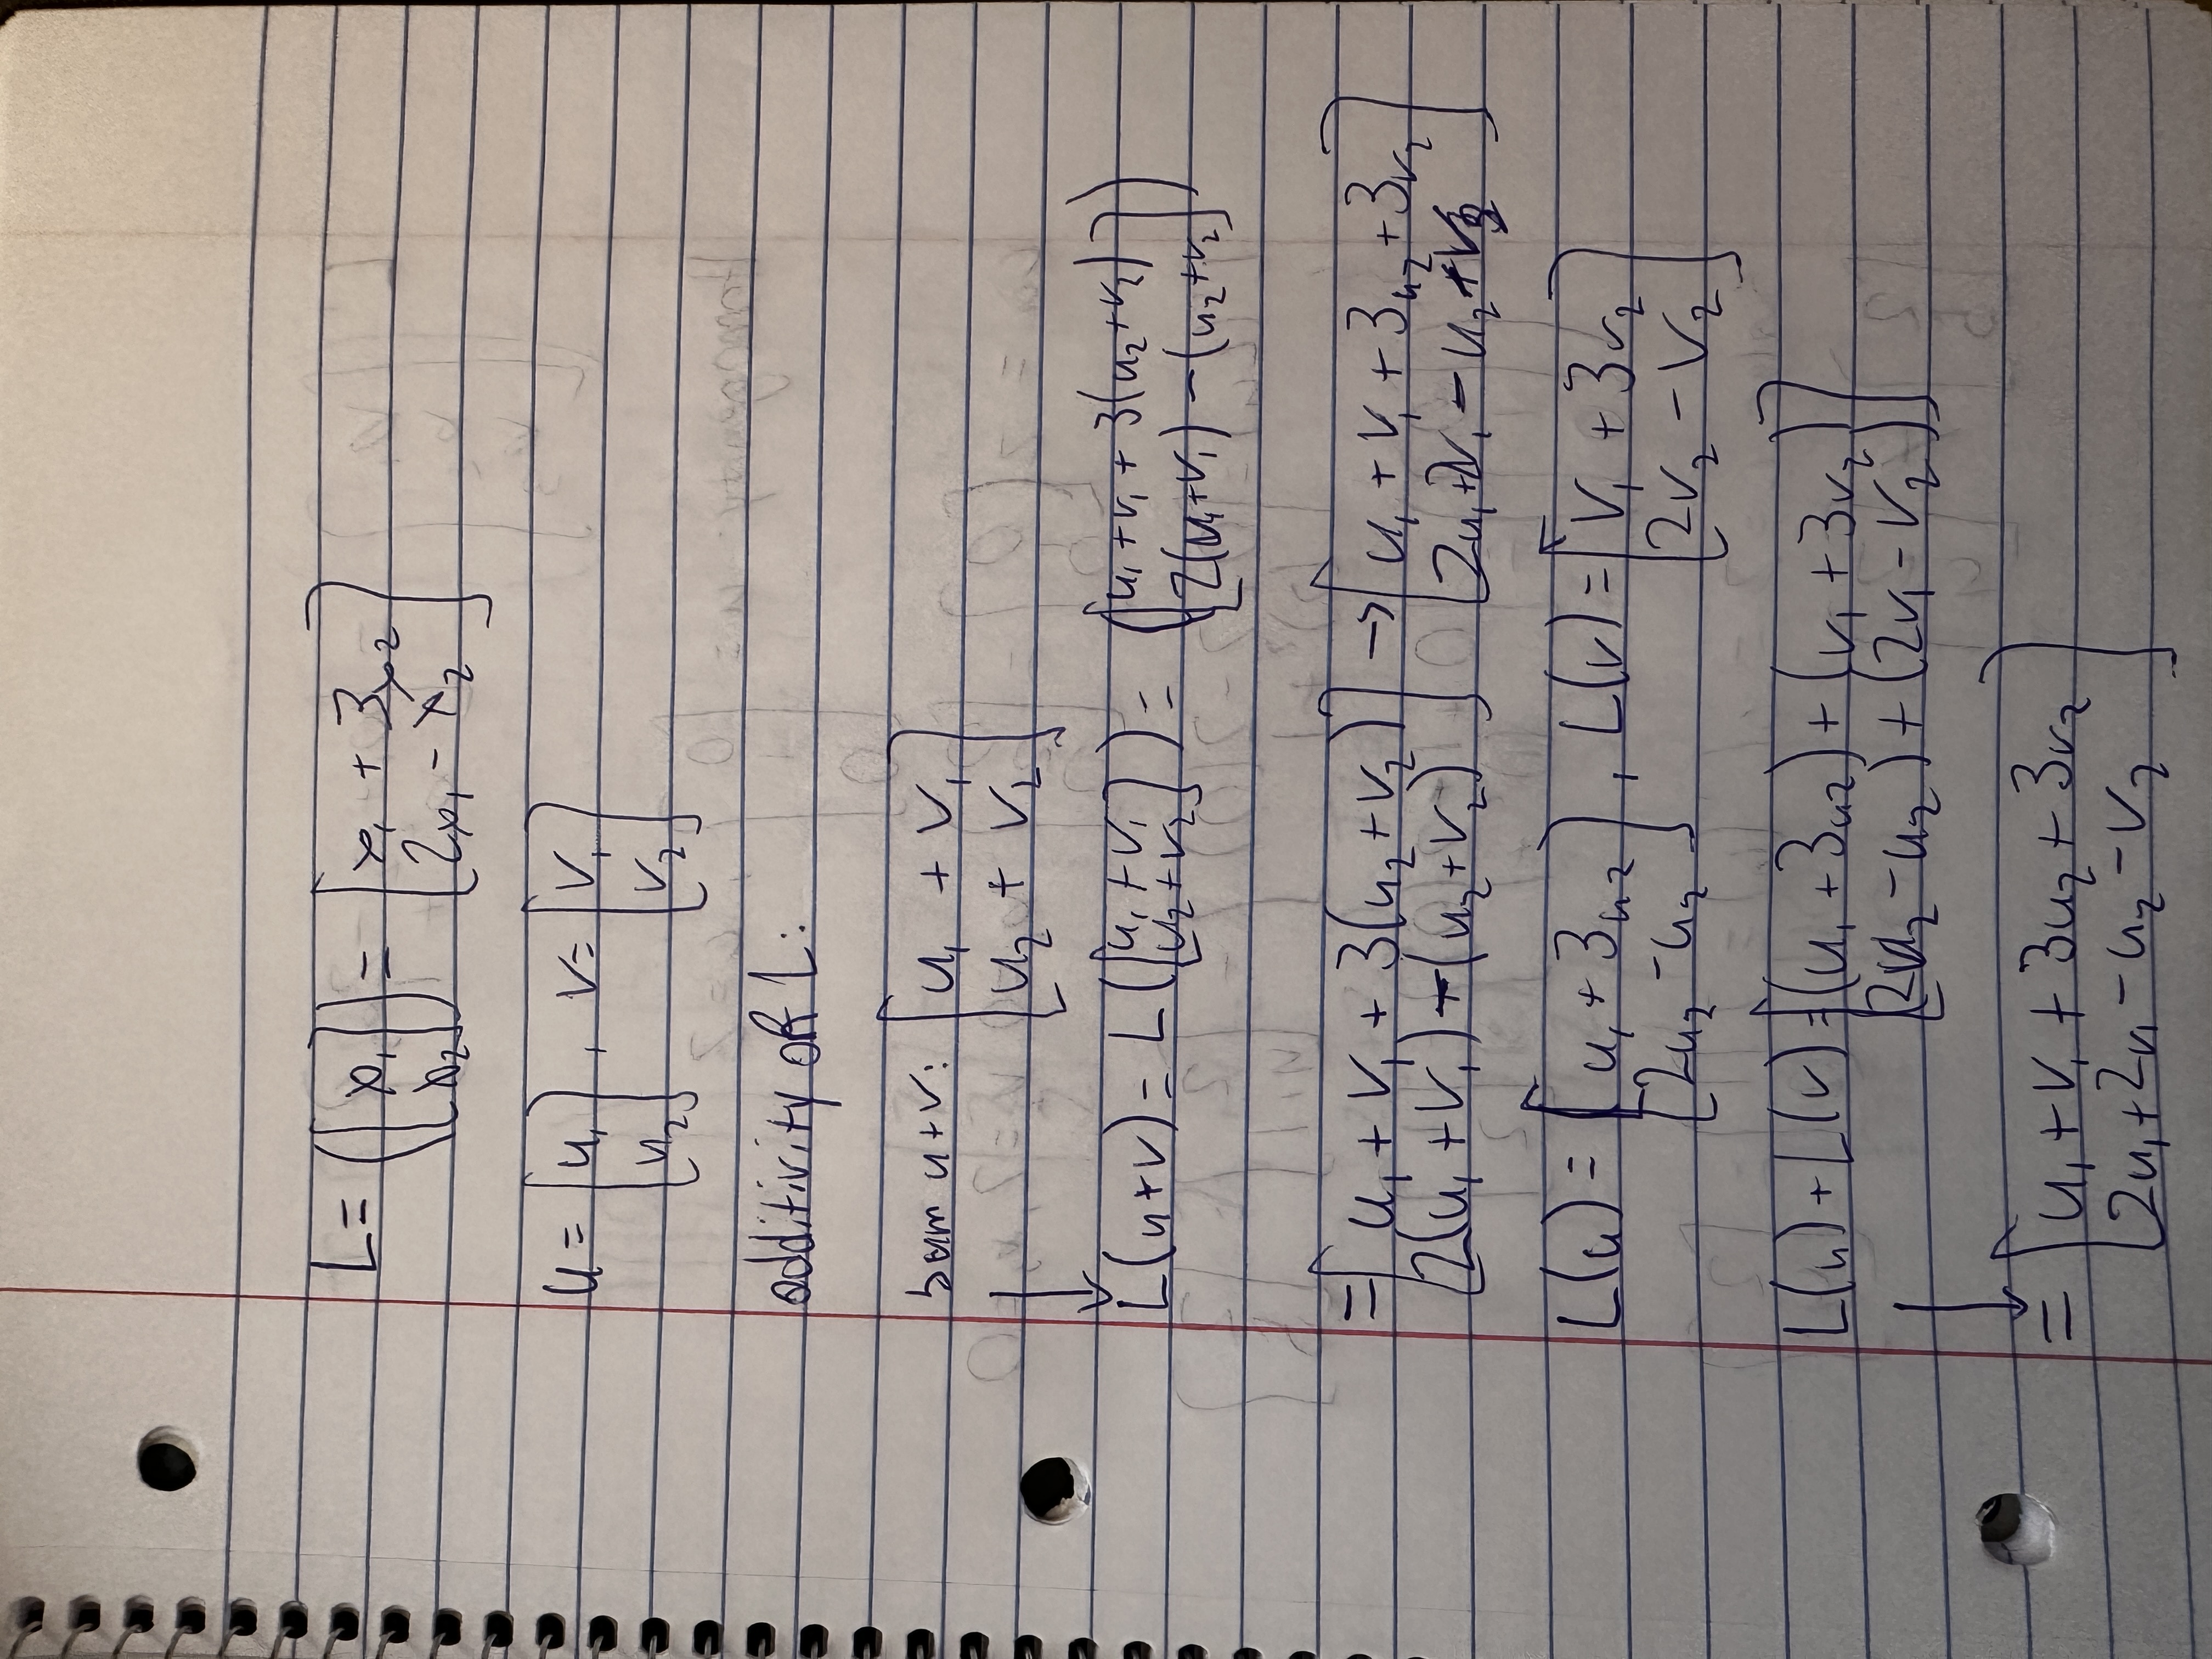 L = ([x₁; x₂]) = [x₁ + 3x₂; 2x₁ - x₂]
u = [u₁; u₂] , v = [v₁; v₂]
additivity of L:
sum u+v: [u₁ + v₁; u₂ + v₂]
↓
L(u+v) = L([u₁+v₁; u₂+v₂]) = ([u₁+v₁+3(u₂+v₂); 2(u₁+v₁) - (u₂+v₂])
= [u₁ + v₁ + 3(u₂+v₂); 2(u₁+v₁) - (u₂+v₂)] → [u₁ + v₁ + 3u₂ + 3v₂; 2u₁+2v₁ - u₂ + v₂]
L(u) = [u₁ + 3u₂; 2u₂ - u₂] , L(v) = [v₁ + 3v₂; 2v₂ - v₂]
L(u) + L(v) = [(u₁ + 3u₂) + (v₁ + 3v₂); 2u₂ - u₂) + (2v₁ - v₂)]
↓
= [u₁ + v₁ + 3u₂ + 3v₂; 2u₁ + 2v₁ - u₂ - v₂]